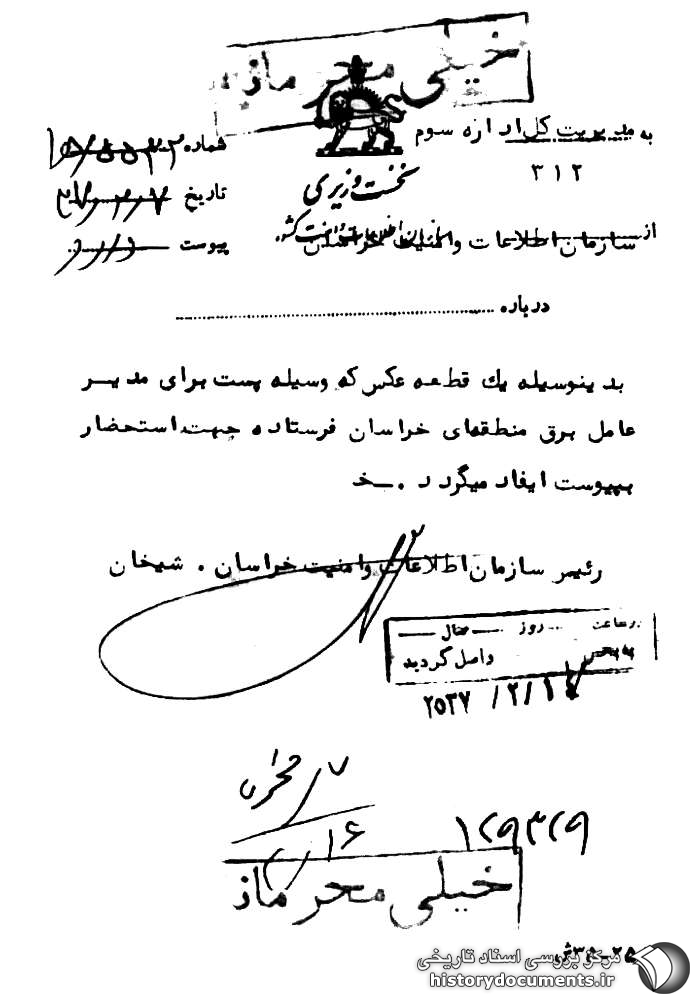 خیلی محرمانه
به مدیریت کل اداره سوم
۳۱۲
شماره
تاریخ ۳۷/۲/۷
پیوست
نخست وزیری
از سازمان اطلاعات و امنیت خراسان
درباره
بدینوسیله یك قطعه عکس که وسیله پست برای مدیر
عامل برق منطقه‌ای خراسان فرستاده جهت استحضار
بپیوست ایفاد میگردد . ـخ
رئیس سازمان اطلاعات و امنیت خراسان . شیخان
ساعت روز سال
به بخش واصل گردید
۲۵۳۷/۲/۱۷
۱۶
۱۲۹۳۲۹
خیلی محرماز
۲۵-۳۵ش
مرکز بررسی اسناد تاریخی
historydocuments.ir